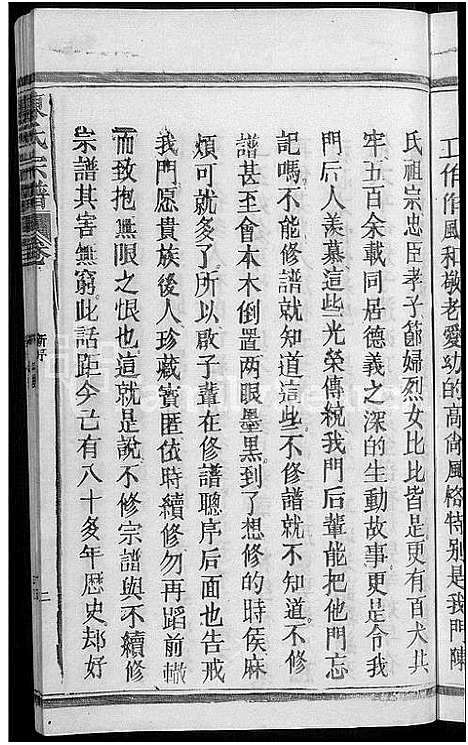 工作作風和敬老愛幼的高尚風格特別是我門陳
氏祖宗忠臣孝子節婦烈女比比皆是更有百犬共
牢五百余載同居德義之深的生動故事更是令我
門后人羨慕這些光榮傳統我門后輩能把他門忘
記嗎。不修譜就知道這些。不修譜就不知道。不修
譜甚至會本木倒置两眼墨黑。到了想修的時侯麻
煩可就多了。所以啟子輩在修譜聰序后面也告戒
我門愿貴族後人珍藏寳匿依時續修勿再蹈前轍
而致抱無限之恨也。這就是說不修宗譜與不續修
宗譜其害無窮。此話距今亡有八十多年歷史却好
陳氏宗譜
新序
二